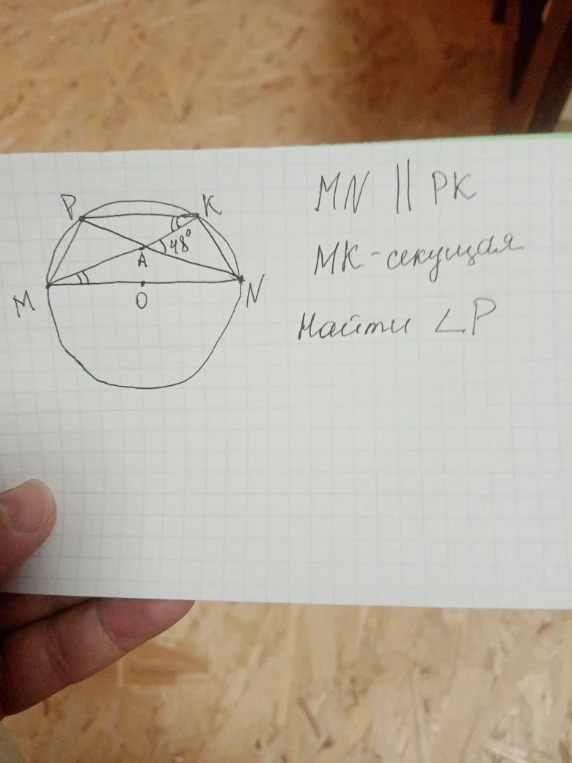 MN || PK
МК-секущая
Найти ∠P
P
K
48°
A
M
O
N